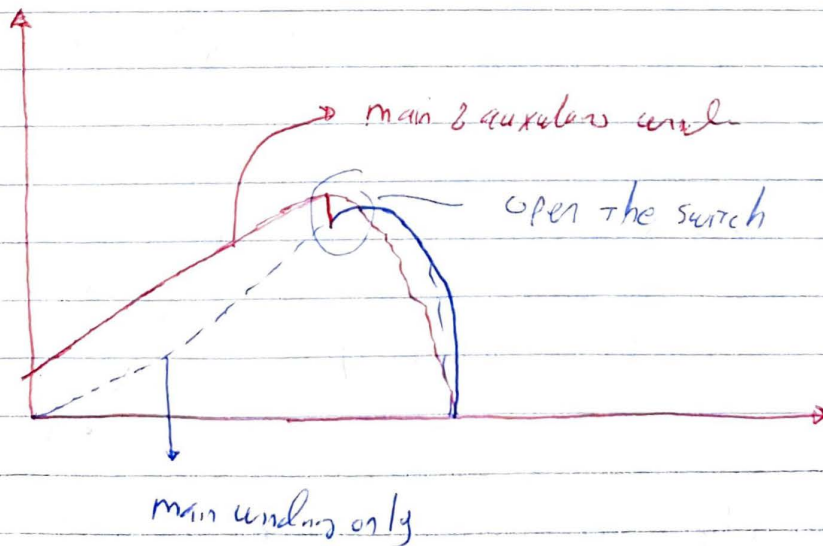 main & auxulary wind
open the switch
main winding only